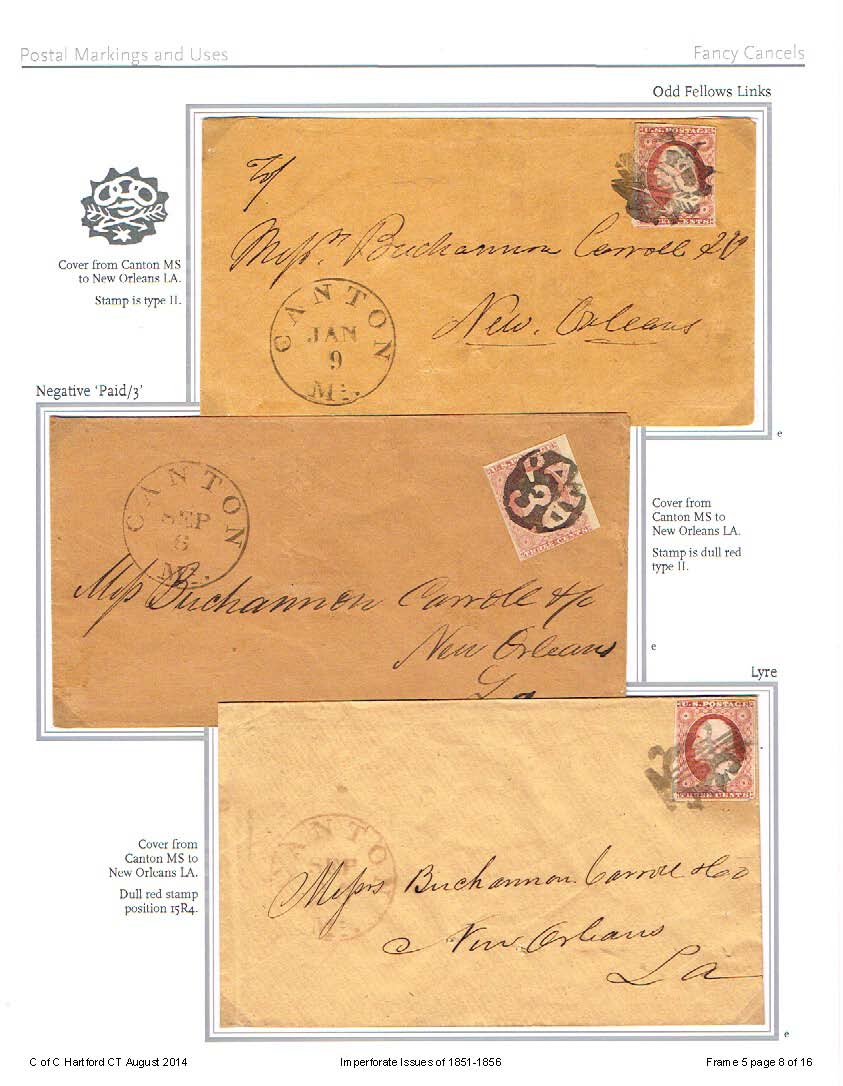 Postal Markings and Uses
Fancy Cancels
Odd Fellows Links
Cover from Canton MS
to New Orleans LA.
Stamp is type II.
U.S. POSTAGE
Messrs. Buchannon Carroll & Co
New. Orleans
CANTON
JAN
9
Mi.
e
Negative 'Paid/3'
CANTON
SEP
6
Mi.
PAID
3
THREE CENTS
Mess Buchannon Carroll & Co
New Orleans
La
Cover from
Canton MS to
New Orleans LA.
Stamp is dull red
type II.
e
Lyre
U.S. POSTAGE
THREE CENTS
Cover from
Canton MS to
New Orleans LA.
Dull red stamp
position 15R4.
CANTON
Messrs Buchannon Carroll & Co
New Orleans
La
e
C of C Hartford CT August 2014
Imperforate Issues of 1851-1856
Frame 5 page 8 of 16